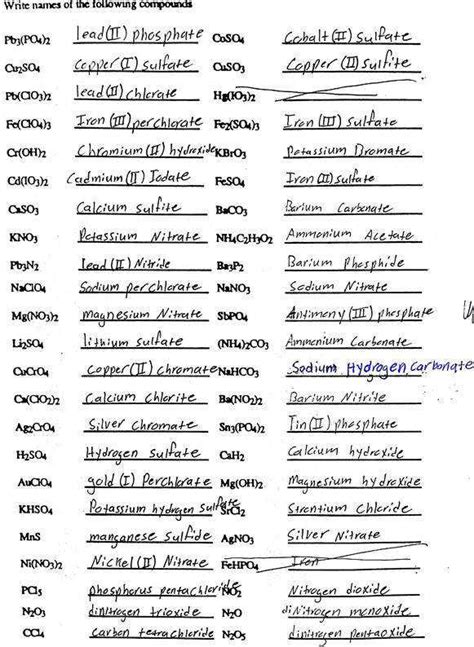 Write names of the following compounds
Pb3(PO4)2 lead(II) phosphate CoSO4 Cobalt (II) sulfate
Cu2SO4 copper(I) sulfate CuSO3 Copper (II) sulfite
Pb(ClO3)2 lead(II) chlorate Hg(IO3)2
Fe(ClO4)3 Iron (III) perchlorate Fe2(SO4)3 Iron (III) sulfate
Cr(OH)2 Chromium(II) hydroxide KBrO3 Potassium Bromate
Cd(IO3)2 Cadmium(II) Iodate FeSO4 Iron (II) sulfate
CaSO3 Calcium sulfite BaCO3 Barium Carbonate
KNO3 Potassium Nitrate NH4C2H3O2 Ammonium Acetate
Pb3N2 lead(II) Nitride Ba3P2 Barium Phosphide
NaClO4 Sodium perchlorate NaNO3 Sodium Nitrate
Mg(NO3)2 magnesium Nitrate SbPO4 Antimony (III) phosphate
Li2SO4 lithium sulfate (NH4)2CO3 Ammonium Carbonate
CuCrO4 copper(II) chromate NaHCO3 Sodium Hydrogen Carbonate
Ca(ClO2)2 Calcium chlorite Ba(NO2)2 Barium Nitrite
Ag2CrO4 Silver chromate Sn3(PO4)2 Tin(II) phosphate
H2SO4 Hydrogen sulfate CaH2 Calcium hydroxide
AuClO4 gold (I) Perchlorate Mg(OH)2 Magnesium hydroxide
KHSO4 Potassium hydrogen sulfate SrCl2 Strontium Chloride
MnS manganese sulfide AgNO3 Silver Nitrate
Ni(NO3)2 Nickel (II) Nitrate FeHPO4 Iron
PCl5 phosphorus pentachloride NO2 Nitrogen dioxide
N2O3 dinitrogen trioxide N2O diNitrogen monoxide
CCl4 carbon tetrachloride N2O5 dinitrogen pentaoxide